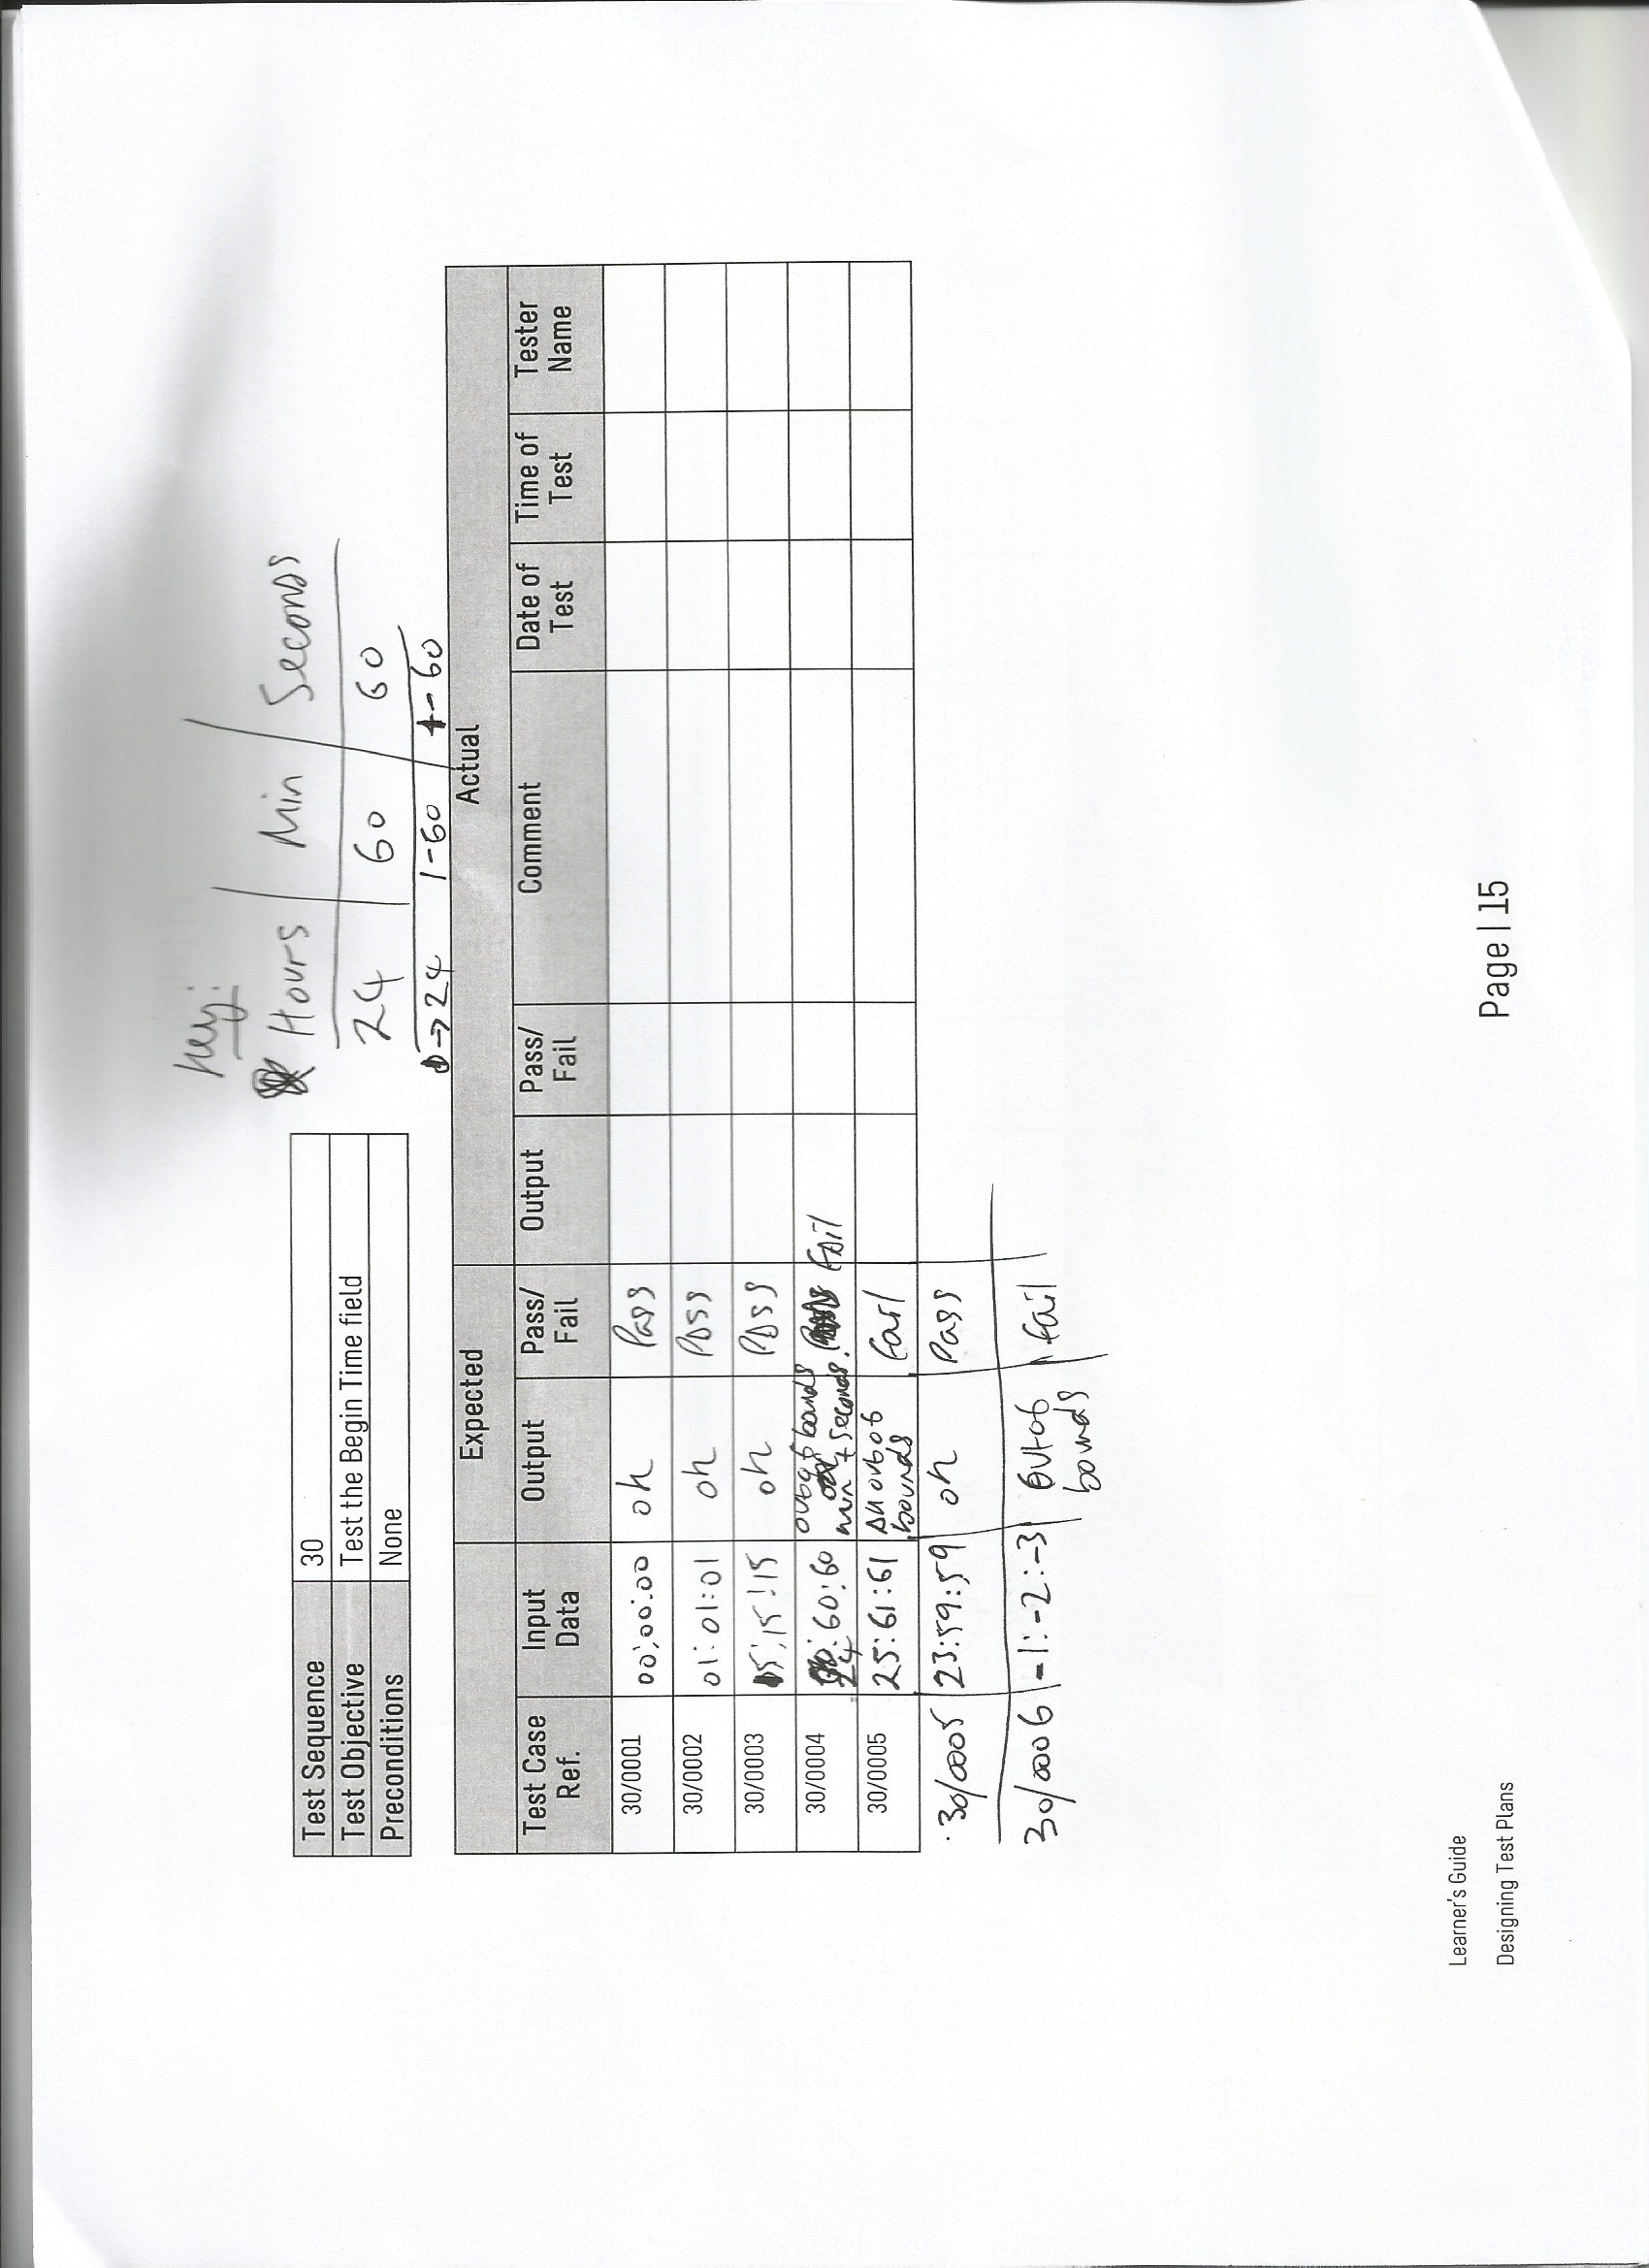 Key:
Hours | Min | Seconds
24 | 60 | 60
0->24 1-60 1-60
Test Sequence 30
Test Objective Test the Begin Time field
Preconditions None
Expected Actual
Test Case Ref. Input Data Output Pass/Fail Output Pass/Fail Comment Date of Test Time of Test Tester Name
30/0001 00:00:00 ok Pass
30/0002 01:01:01 ok Pass
30/0003 15:15:15 ok Pass
30/0004 24:60:60 out of bounds min + seconds. Fail
30/0005 25:61:61 All out of bounds Fail
30/0005 23:59:59 ok Pass
30/0006 -1:-2:-3 out of bounds fail
Learner's Guide
Designing Test Plans
Page | 15